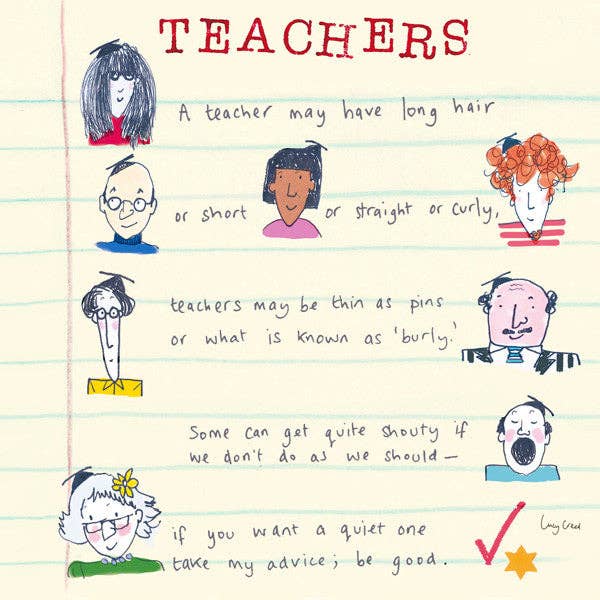 TEACHERS
A teacher may have long hair
or short or straight or curly,
teachers may be thin as pins
or what is known as 'burly.'
Some can get quite shouty if
we don't do as we should—
if you want a quiet one
take my advice; be good.
Lucy Creed